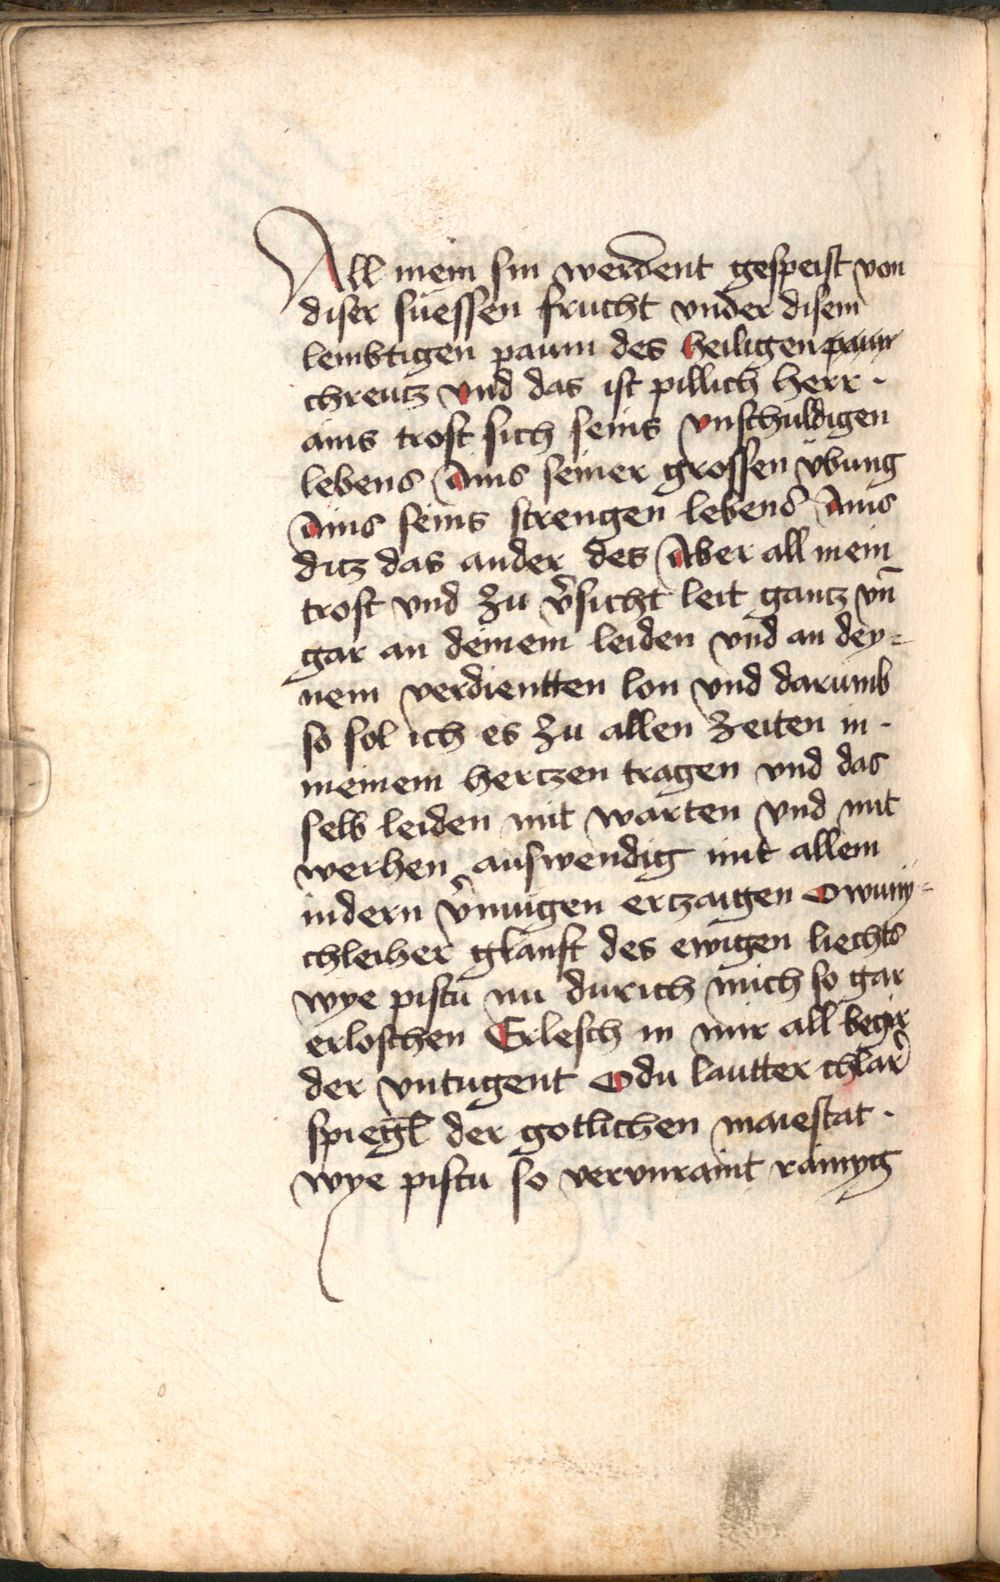 All mein sin werdent gespeist von
diser suessen frucht vnder disem
lembtigen paum des heiligen paum
chreutz vnd das ist pillich herr ·
ains trost sich seins vnschuldigen
lebens Ains seiner grossen vbung
Ains seins strengen lebens Ains
ditz das ander des Aber all mein
trost vnd zu v̾sicht leit gantz vn̄
gar an deinem leiden vnd an dey=
nem verdientten lon vnd darumb
so sol ich es zu allen zeiten in ·
meinem hertzen tragen vnd das
selb leiden mit warten vnd mit
werhen auswendig mit allem
indern v̾mugen ertzaigen O wuny=
chleiher glanst des ewigen liechts
wye pistu nu durich mich so gar
erloschen Erlesch in mir all begir
der vntugent O du lautter chlar̾
spiegl̄ der gotlichen maiestat ·
wye pistu so vervnraint rainyg